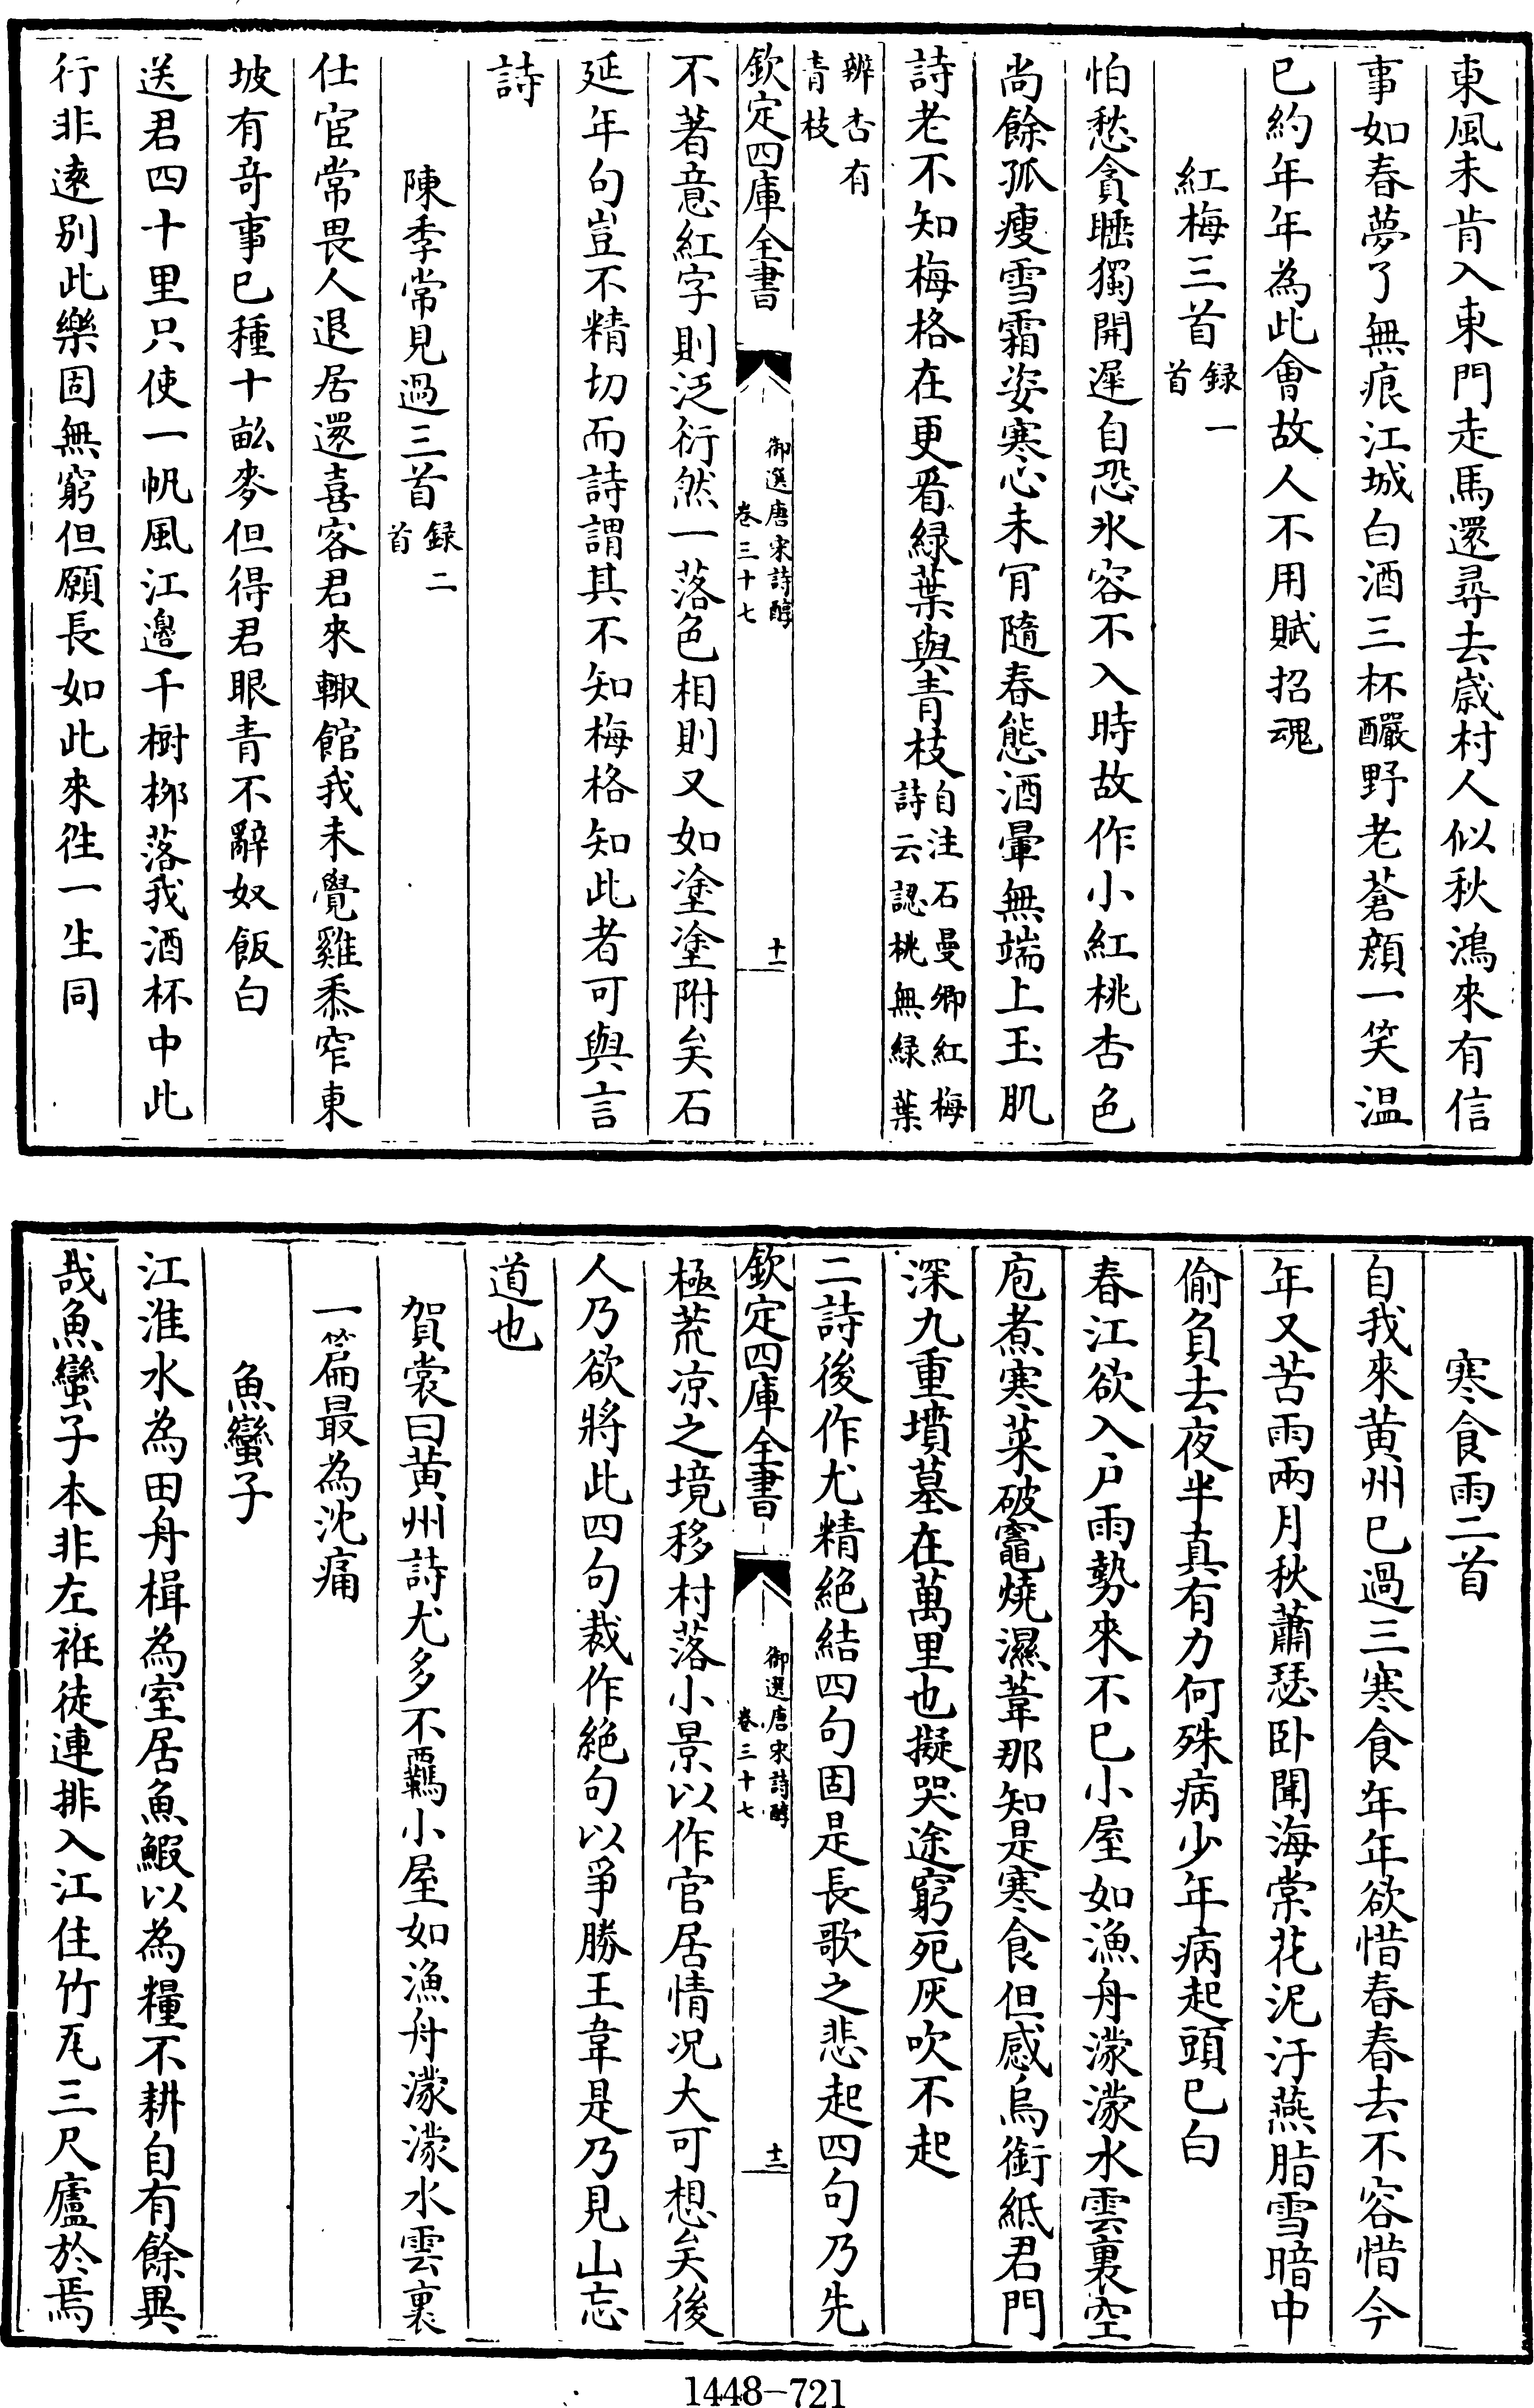 東風未肯入東門走馬還尋去歲村人似秋鴻來有信
事如春夢了無痕江城白酒三杯釅野老蒼顔一笑温
已約年年為此㑹故人不用賦招魂
紅梅三首録一首
怕愁貪睡獨開遲自恐氷容不入時故作小紅桃杏色
尚餘孤瘦雪霜姿寒心未肎隨春態酒暈無端上玉肌
詩老不知梅格在更看緑葉與青枝自注石曼卿紅梅詩云認桃無緑葉
辨杏有青枝
欽定四庫全書
御選唐宋詩醇卷三十七
十一
不著意紅字則泛衍然一落色相則又如塗塗附矣石
延年句豈不精切而詩謂其不知梅格知此者可與言
詩
陳季常見過三首録二首
仕宦常畏人退居還喜客君來輙館我未覺雞黍窄東
坡有竒事已種十畝麥但得君眼青不辭奴飯白
送君四十里只使一帆風江邊千樹栁落我酒杯中此
行非逺别此樂固無窮但願長如此來往一生同
寒食雨二首
自我來黄州已過三寒食年年欲惜春春去不容惜今
年又苦雨兩月秋蕭瑟卧聞海棠花泥汙燕脂雪暗中
偷負去夜半真有力何殊病少年病起頭已白
春江欲入户雨勢來不已小屋如漁舟濛濛水雲裏空
庖煮寒菜破竈燒濕葦那知是寒食但感烏銜紙君門
深九重墳墓在萬里也擬哭途窮死灰吹不起
二詩後作尤精絶結四句固是長歌之悲起四句乃先
欽定四庫全書
御選唐宋詩醇卷三十七
十二
極荒凉之境移村落小景以作官居情况大可想矣後
人乃欲將此四句裁作絶句以爭勝王韋是乃見山忘
道也
賀裳曰黄州詩尤多不羈小屋如漁舟濛濛水雲裏
一篇最為沈痛
魚蠻子
江淮水為田舟楫為室居魚鰕以為糧不耕自有餘異
哉魚蠻子本非左袵徒連排入江住竹瓦三尺廬於焉
1448-721